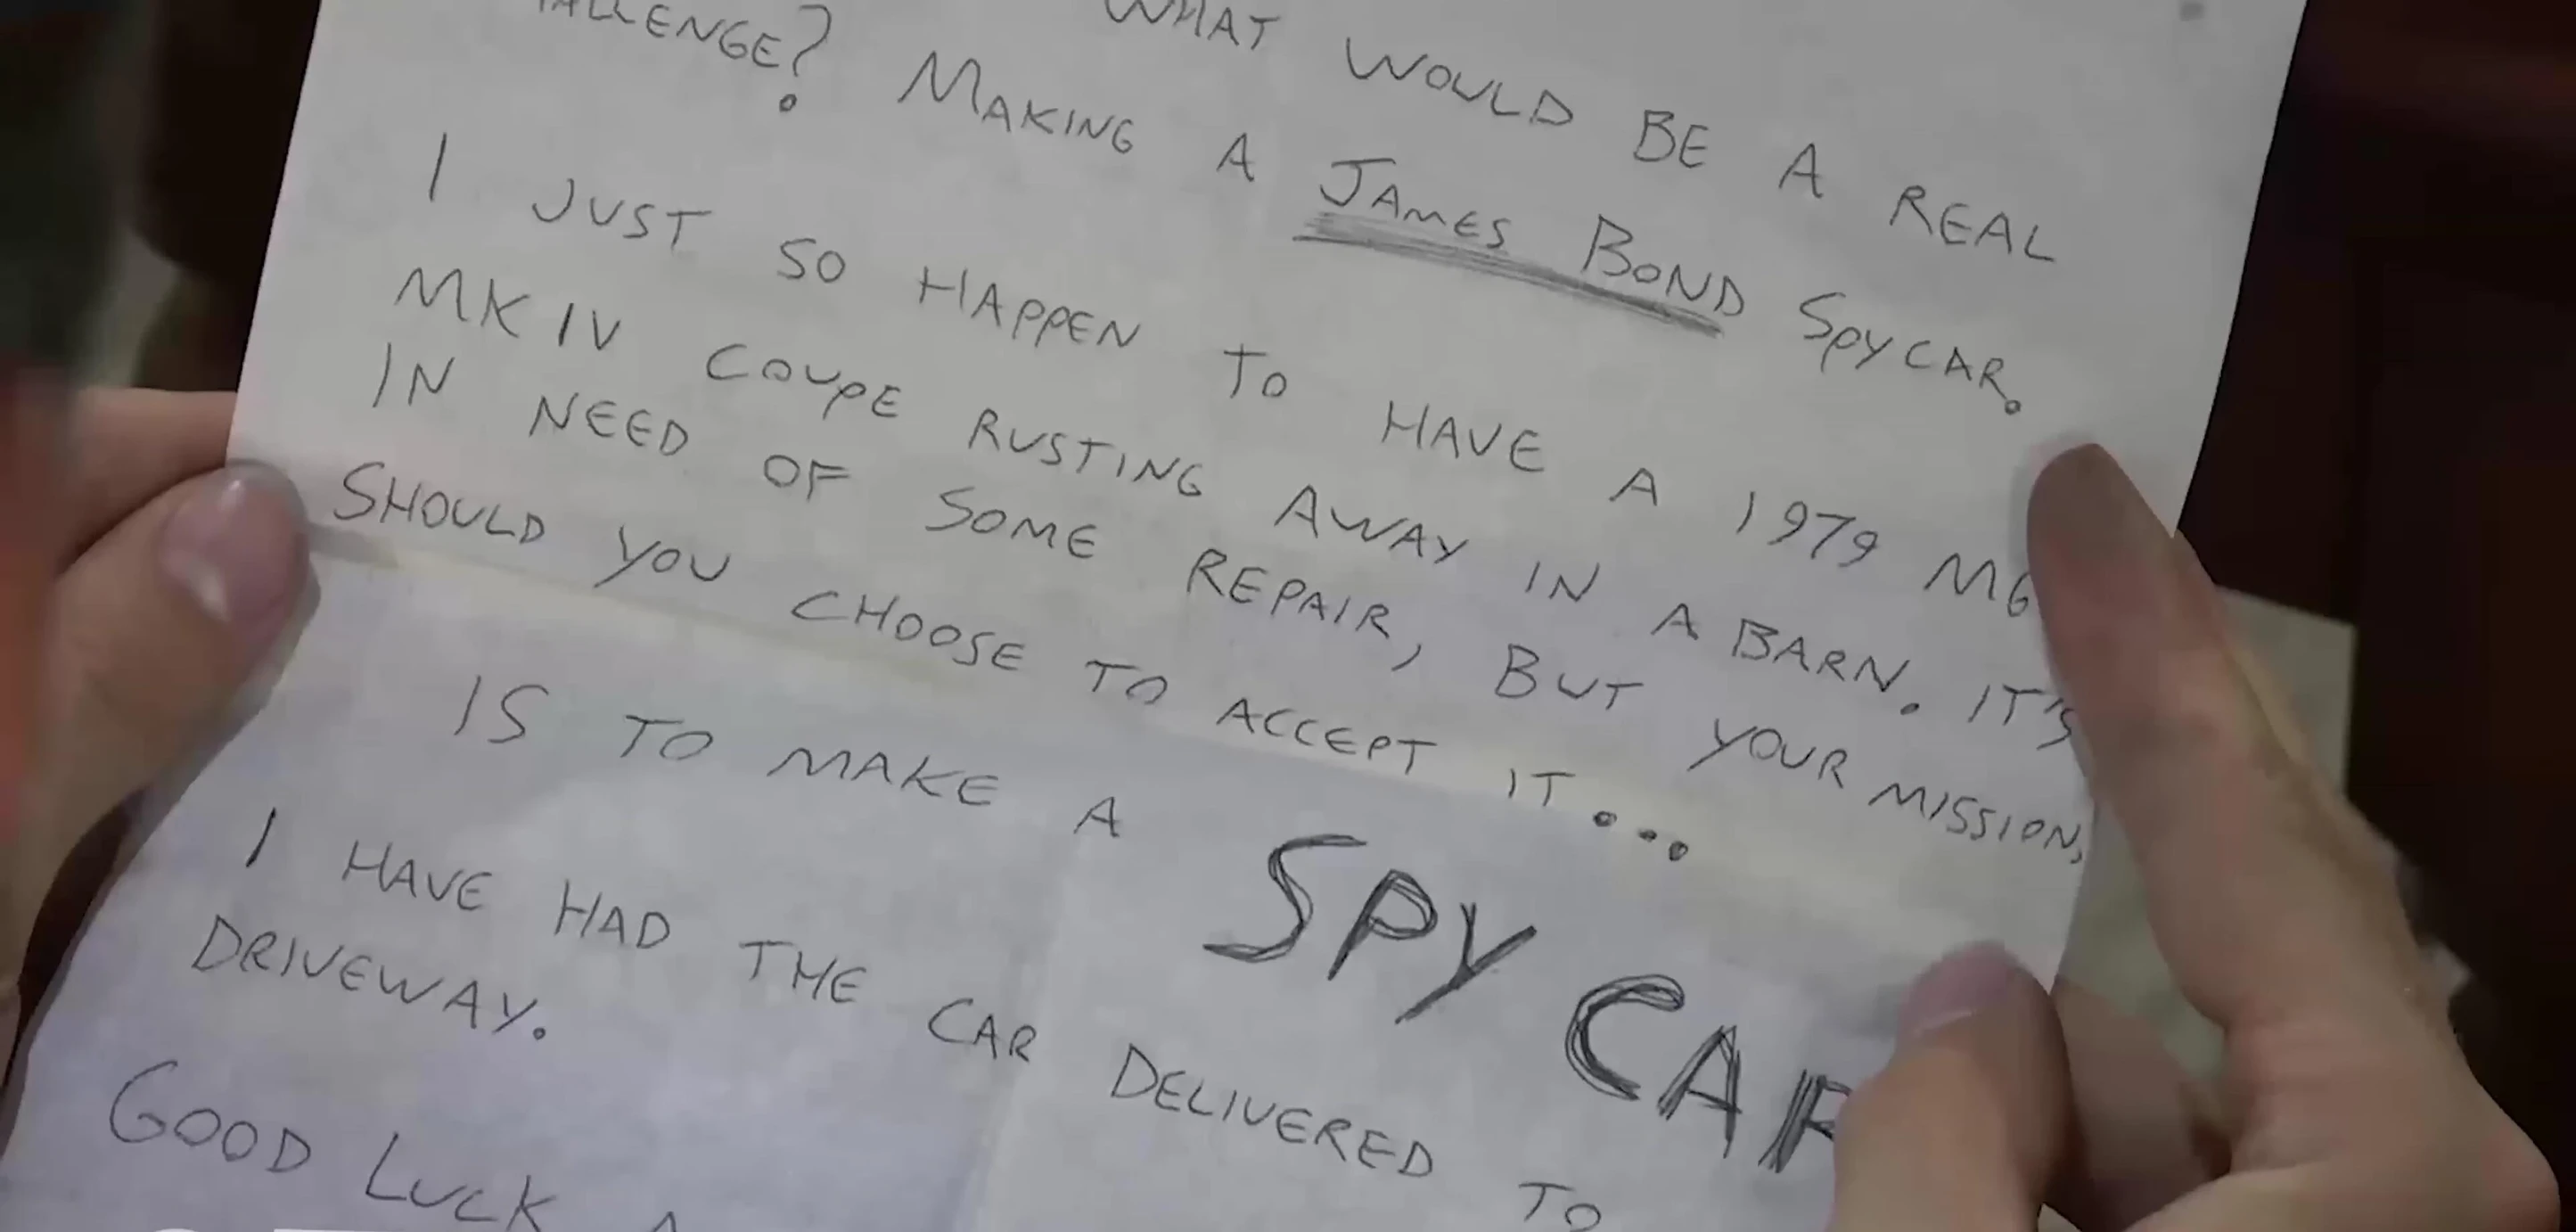 WHAT WOULD BE A REAL
ALLENGE? MAKING A JAMES BOND SPY CAR.
I JUST SO HAPPEN TO HAVE A 1979 MG
MK IV COUPE RUSTING AWAY IN A BARN. IT'S
IN NEED OF SOME REPAIR, BUT YOUR MISSION,
SHOULD YOU CHOOSE TO ACCEPT IT...
IS TO MAKE A SPY CAR
I HAVE HAD THE CAR DELIVERED TO
DRIVEWAY.
GOOD LUCK